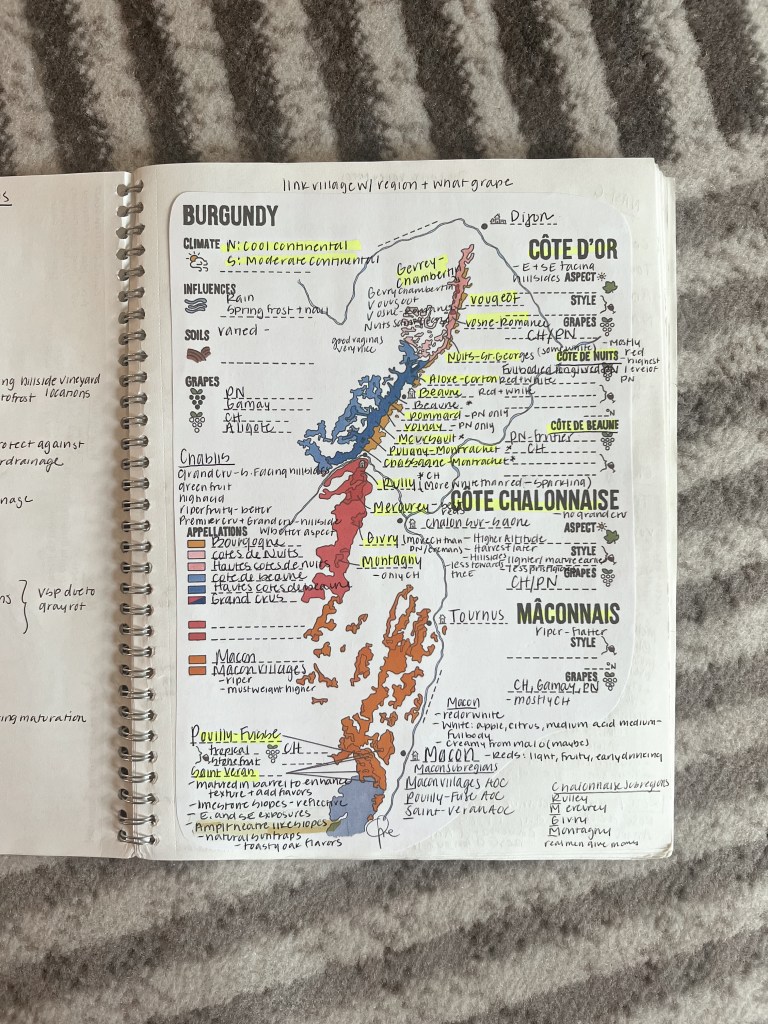 link village w/ region + what grape
BURGUNDY
Dijon
CLIMATE N: Cool continental
S: Moderate Continental
INFLUENCES
Rain
Spring frost + hail
SOILS varied -
GRAPES
PN
Gamay
CH
Aligote
Chablis
Grand Cru - S. Facing hillsides
green fruit
high acid
ripe fruity - better
Premier Cru + Grand Cru - hillside
w/ better aspect
APPELLATIONS
Bourgogne
Cotes de Nuits
Hautes cotes de nuits
cote de beaune
Hautes cotes de beaune
Grand Crus
Macon
Macon villages
- riper
- must weight higher
Pouilly-Fuisse
tropical
stone fruit
CH
Saint Veran
- matured in barrel to enhance
texture + add flavors
- limestone slopes - reflective
- E. and SE exposures
Ampitheatre like slopes
- natural suntraps
- toasty oak flavors
Gevrey-
Chambertin
Gevry chambertin
Vougout
Vosne-
Nuits
good vaginas
very nice
CÔTE D'OR
- E + SE facing
hillsides ASPECT
Vougeot
STYLE
Vosne-Romanee
GRAPES
CH/PN
Nuits-St. Georges (some white)
CÔTE DE NUITS
- mostly
red
- highest
level of
PN
Full bodied
Aloxe-Corton Red + white
Beaune Red + white
Beaune *
Pommard - PN only
Volnay - PN only
CÔTE DE BEAUNE
Meursault *
PN - fruitier
Puligny-Montrachet * CH
Chassagne-Montrachet *
* CH
Rully (More white than red - Sparkling)
Mercurey - Reds
CÔTE CHALONNAISE
- no grand cru
Chalon-sur-Saone
ASPECT
Givry (more CH than
PN/cremans
- Higher Altitude
- Harvest later
- Hillsides
STYLE
lighter/mature earlier
- less towards
the E
- less prestigious
Montagny
- only CH
GRAPES
CH/PN
Tournus
MÂCONNAIS
riper - flatter
STYLE
GRAPES
CH, Gamay, PN
- mostly CH
Macon
- red or white
- White: apple, citrus, medium acid medium-
full body
- Creamy from malo (maybe)
Macon - Reds: light, fruity, early drinking
Macon subregions
Macon Villages AOC
Pouilly-Fuse AOC
Saint-Veran AOC
Chalonnaise Subregions
Rulley
Mercurey
Givry
Montagny
real men give moms
ng hillside vineyard
to frost locations
rotect against
rdrainage
nage
VSP due to
gray rot
ing maturation